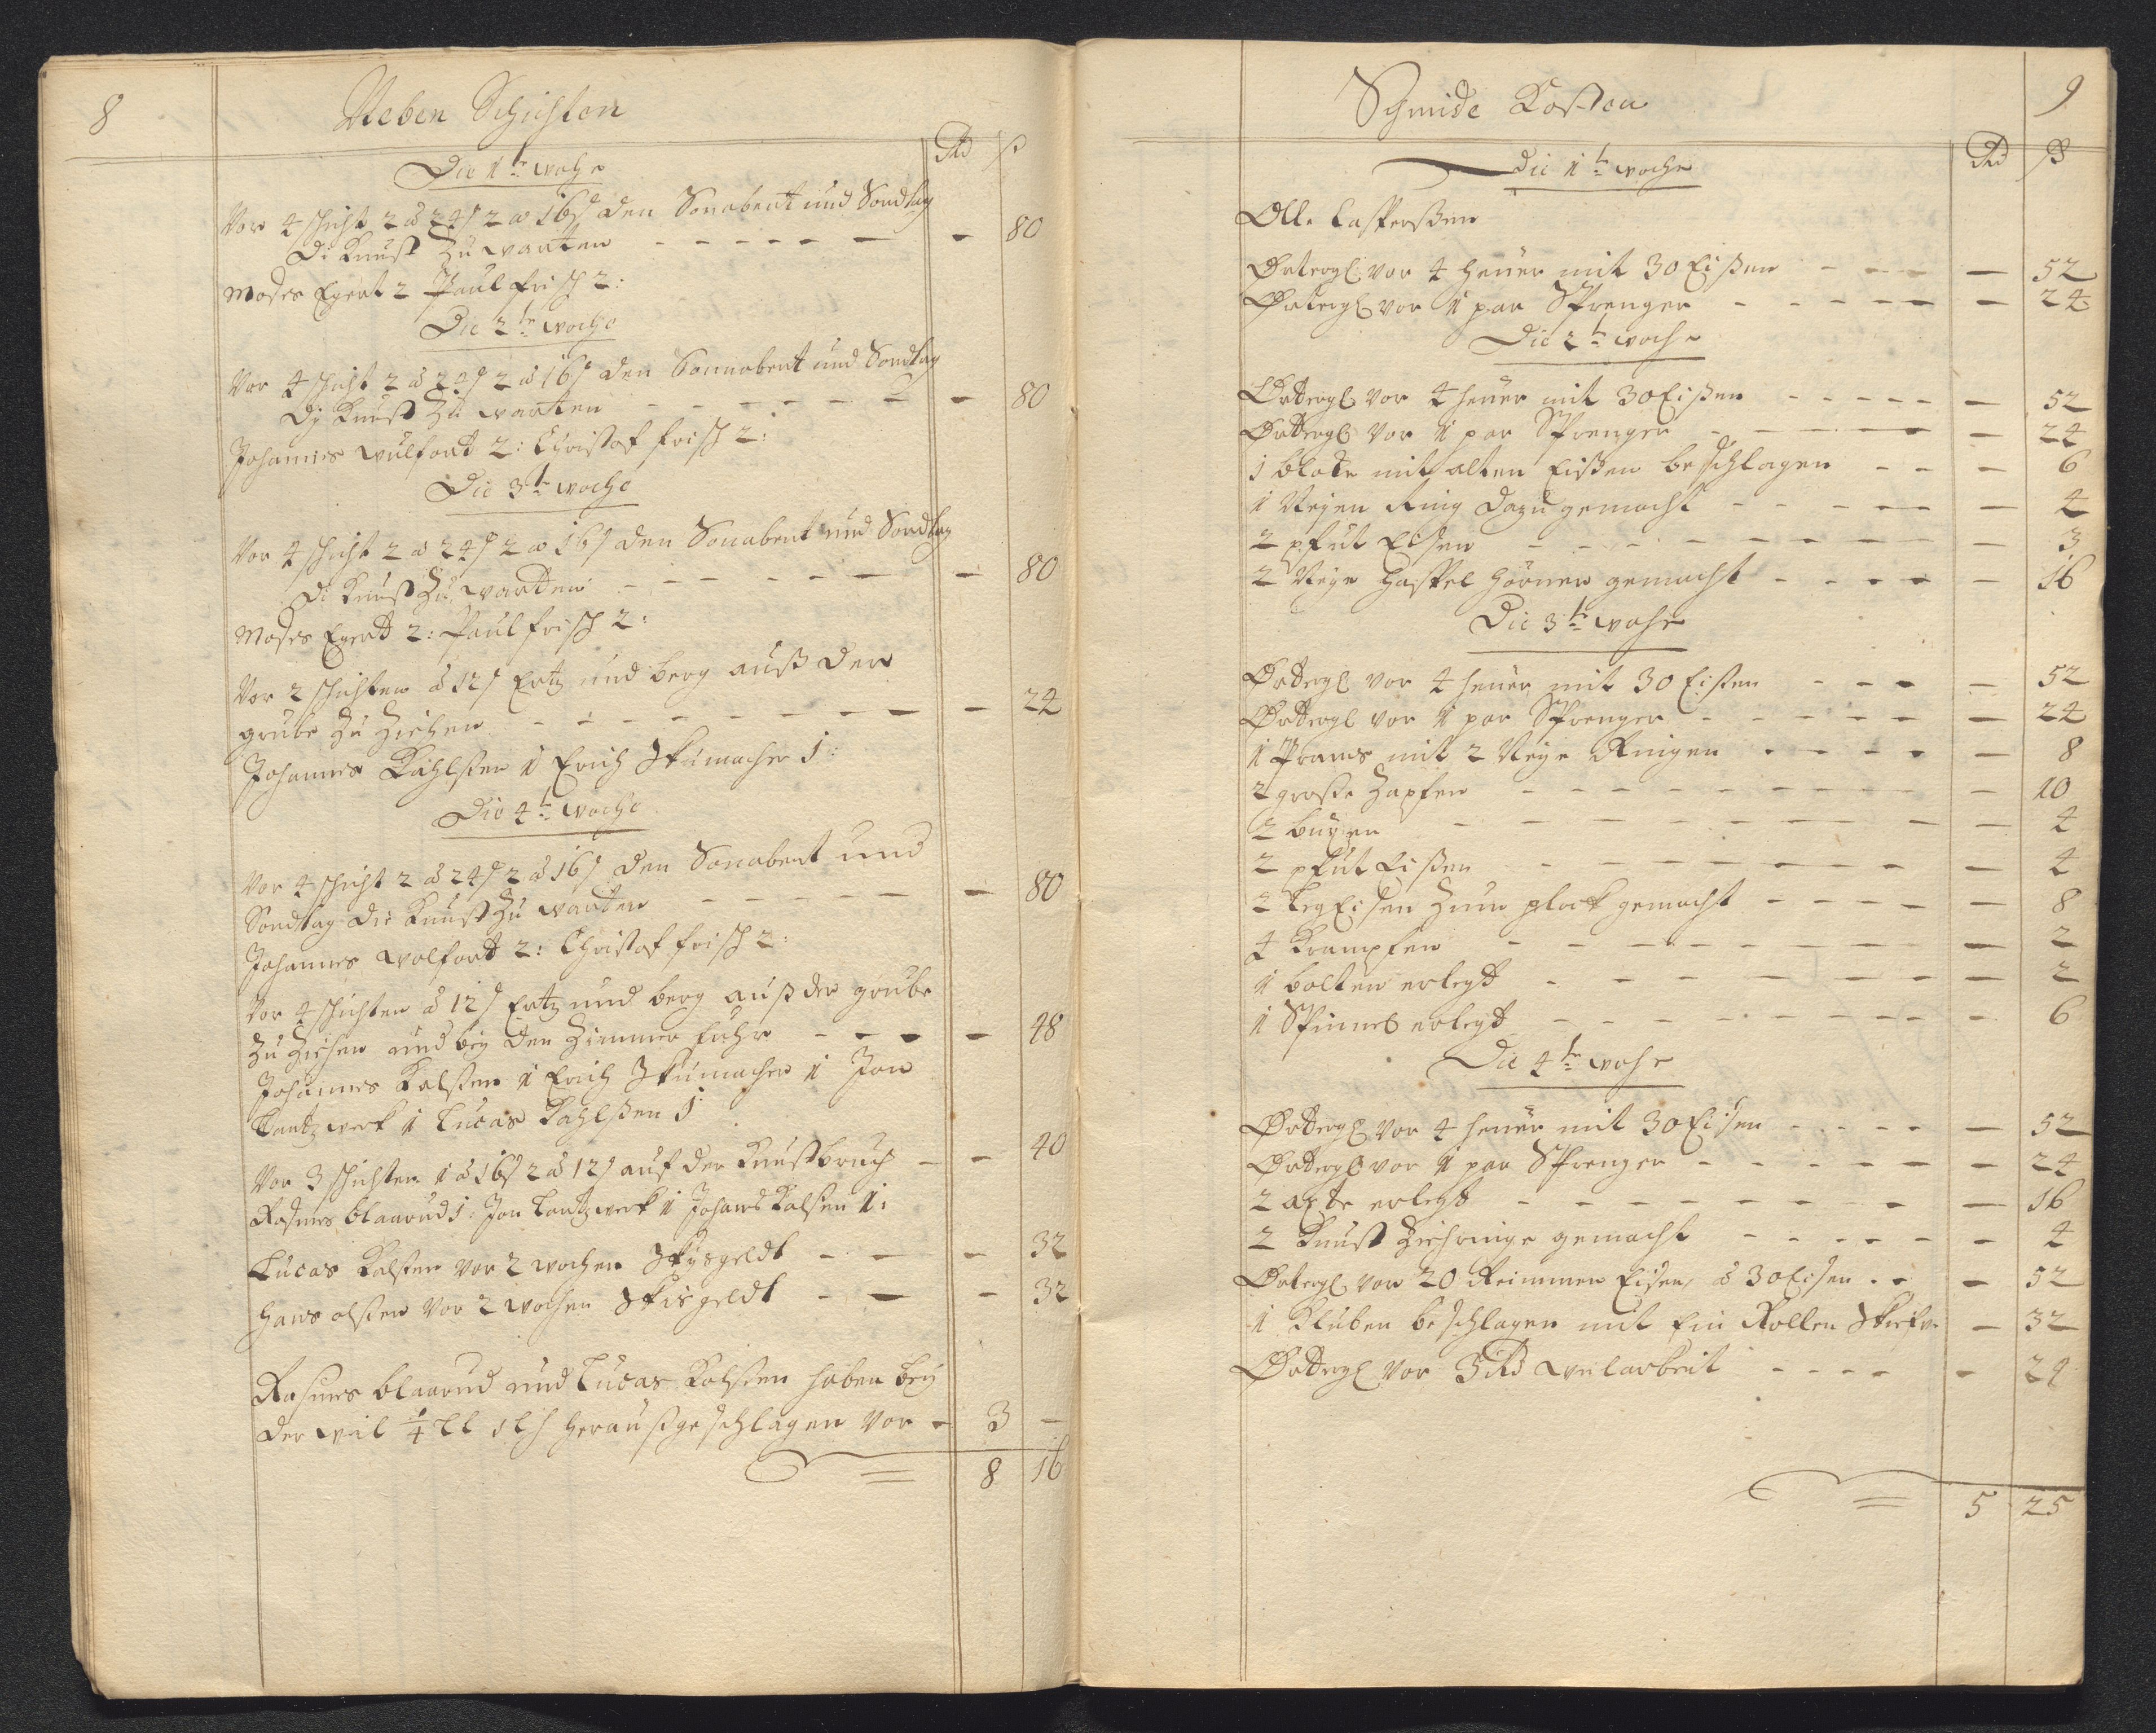 8
Neben Schichten
Rd ß
Die 1te woche
Vor 4 schicht 2 â 24ß 2 â 16ß den Sonabent und Sondtag
Di Kunst Zu warten - - - - - - - 80
Moses Egert 2 Paul frisch 2:
Die 2te woche
Vor 4 schicht 2 â 24ß 2 â 16ß den Sonnabent und Sondtag
Di Kunst Zu warten - - - - - - - 80
Johannes wulfort 2: Christof frisch 2:
Die 3te woche
Vor 4 schicht 2 â 24ß 2 â 16ß den Sonabent und Sondtag
Di Kunst Zu warten - - - - - - - 80
Moses Egert 2: Paul frisch 2:
Vor 2 schichten â 12ß Ertz und berg auß der
grube Zu Ziehen - - - - - - - - - 24
Johannes Kahlsen 1 Erich Skumacher 1:
Die 4te woche
Vor 4 schicht 2 â 24ß 2 â 16ß den Sonabent und
Sondtag die Kunst Zu warten - - - - - - 80
Johannes wolfort 2: Christof frisch 2:
Vor 4 schichten â 12ß Ertz und berg auß der grube
Zu Ziehen und bey den Zimmer fuhr - - - - 48
Johannes Kalsen 1 Erich Skumacher 1 Jon
Lantzwerk 1 Lucas Kahlsen 1
Vor 3 schichten 1 â 16ß 2 â 12ß auf der Kunstbruch - - 40
Rasmes blaarud 1: Jon Lantzwerk 1 Johans Kalsen 1:
Lucas Kalsen vor 2 wochen Skysgeldt - - - 32
Hans olsen Vor 2 wochen Skisgeldt - - - 32
Rasmes blaarud und Lucas Kalsen haben bey
der 1/4 herauß geschlagen Vor - 3 -
8 16
9
Schmide Kosten
Rd ß
Die 1te woche
Olle Caspersßen
Ordergl vor 4 heuer mit 30 Eißen - - - - 52
Ordergl vor 1 par Sprenger - - - - - - 24
Die 2te woche
Ordergl vor 4 heuer mit 30 Eißen - - - - - - 52
Ordergl vor 1 par Sprenger - - - - - - 24
1 blocke mit alten Eißen beschlagen - - - 6
1 Neyen Ring dazu gemacht - - - - - - 4
2 pfut Eisen - - - - - - - - - 3
2 Neye Haspel Hörner gemacht - - - - - 16
Die 3te woche
Ordergl vor 4 heuer mit 30 Eißen - - - - 52
Ordergl vor 1 par Sprenger - - - - - - 24
1 mit 2 Neye Ringen - - - - - 8
2 große Zapfen - - - - - - - - - 10
2 - - - - - - - - - - 4
2 pfut Eißen - - - - - - - - 4
2 Eisen Zum plock gemacht - - - - - 8
4 Krampfen - - - - - - - - - 2
1 bolten erlegt - - - - - - - - 2
1 Spinnel erlegt - - - - - - - - - 6
Die 4te woche
Ordergl vor 4 heuer mit 30 Eisen - - - - - 52
Ordergl vor 1 par Sprenger - - - - - - 24
2 axte erlegt - - - - - - - - - 16
2 Kunst Ziehringe gemacht - - - - - - 4
Ordergl von 20 Reimmer Eisen â 30 Eisen - - - 52
1 Kluben beschlagen mit Ein Rollen - 32
Ordergl vor 3 Rd - - - - - 24
5 25